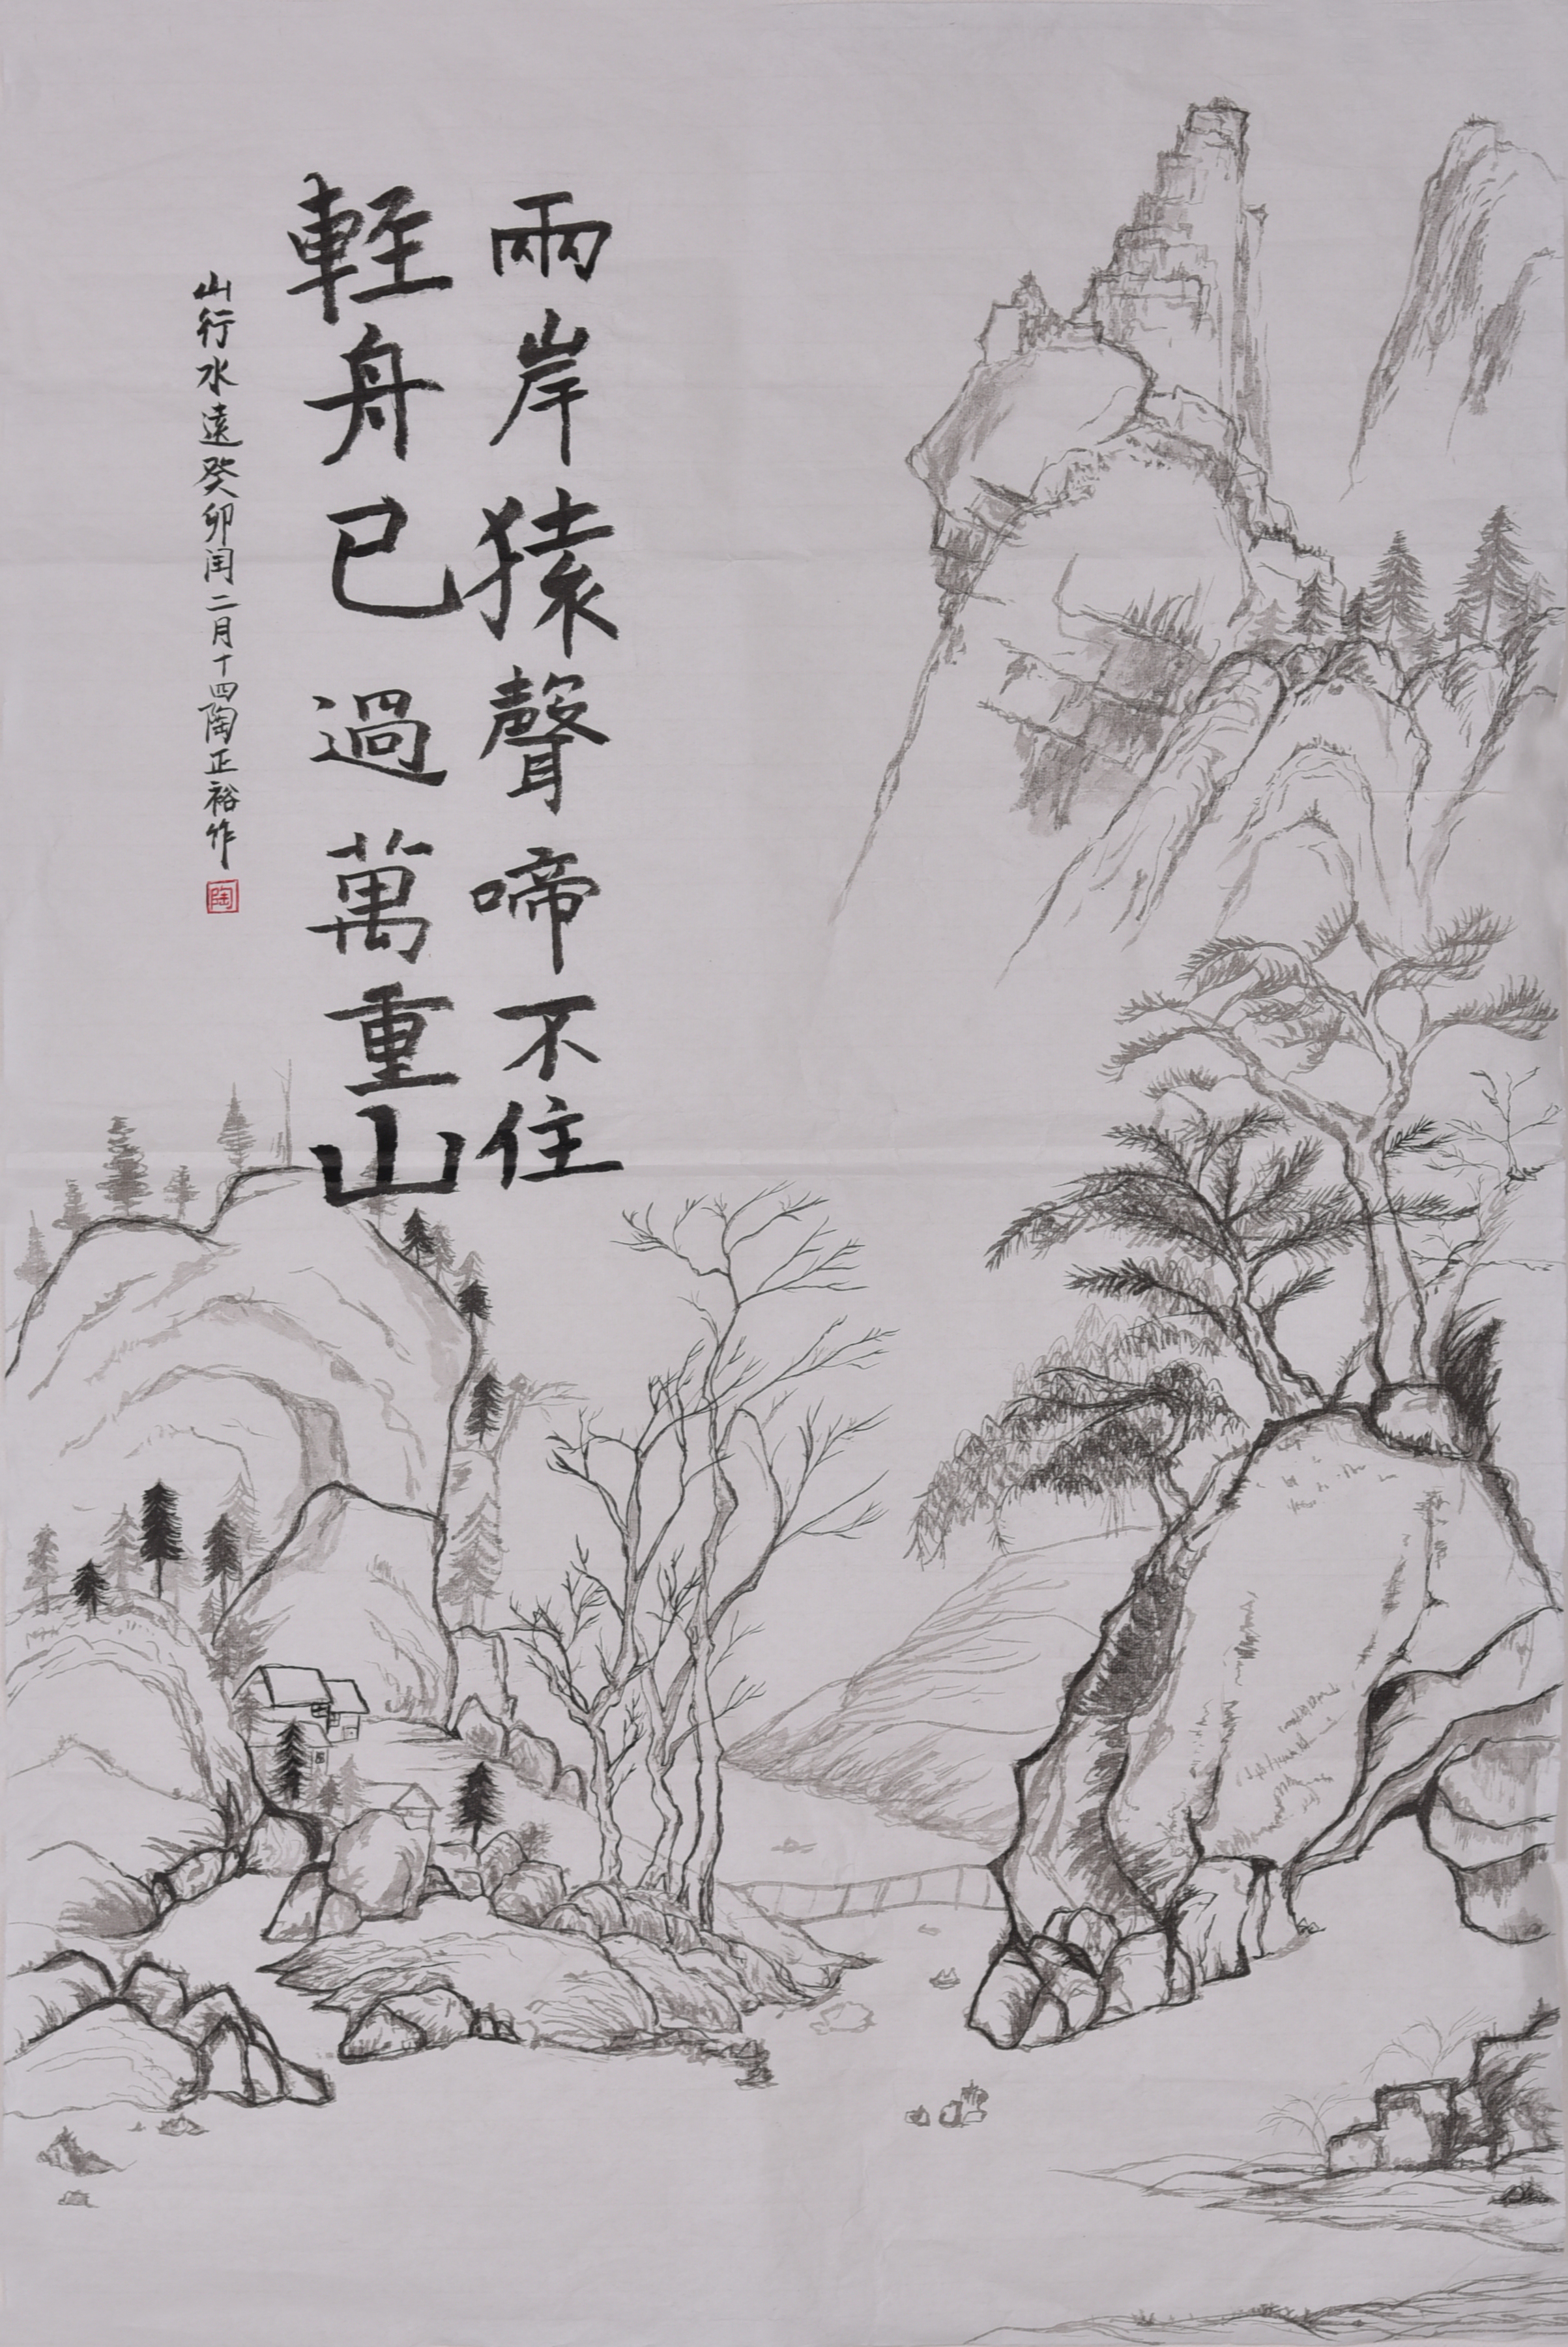 兩岸猿聲啼不住
輕舟已過萬重山
山行水遠癸卯闰二月十四陶正裕作
陶